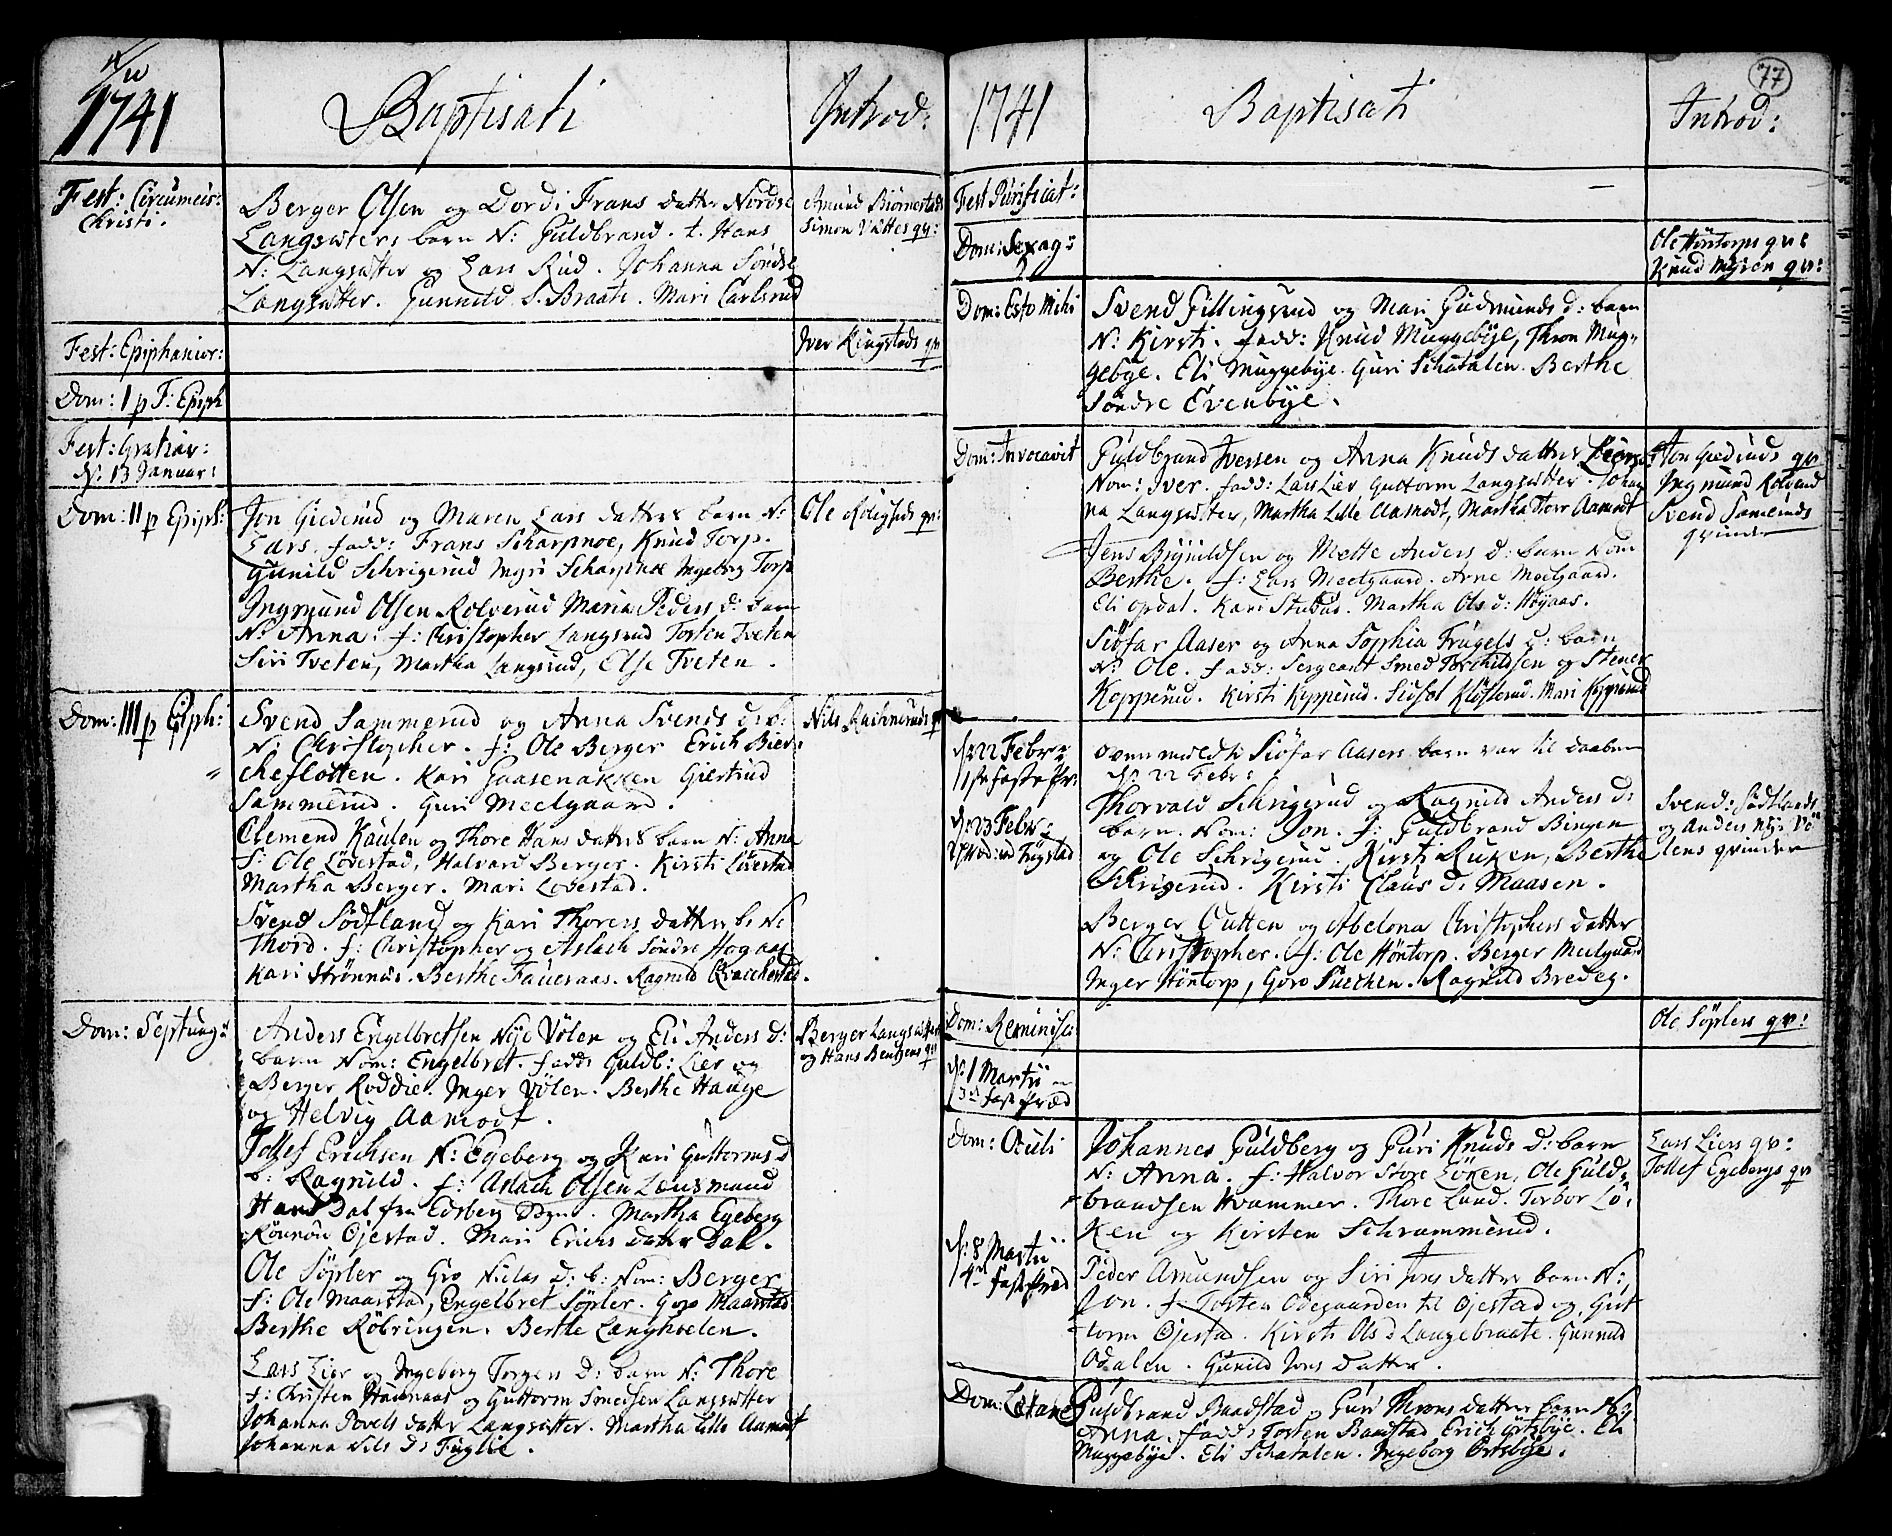 1741
Baptisati
Introd:
Fest: Circumcis:
Christi.
Berger Olsen og Dordi Frans datter Nordre
Langsæters barn N: Guldbrand. t. Hans
N: Langsætter og Lars Rud. Johanna Søndre
Langsætter. Gunnild S. Braate. Mari Carlsrud
Amund Biørnestads
Simon Vættes qv:
Fest: Epiphanior:
Iver Ringstads qv
Dom: I p F: Epiph
Fest: Gratiar:
d: 13 Januar:
Dom: II p Epiph:
Jon Giederud og Maren Lars datters barn N:
Lars. fadd: Frans Scharpnoe, Knud Torp.
Gunild Schrigerud Ingri Scharpnoe Ingeborg Torp
Ingmund Olsen Rolverud Maria Peders d: barn
N: Anna: f: Christopher Langsrud Torsten Tveten
Siri Tveten, Martha Langsrud, Else Tveten.
Ole Roligheds qv:
Dom: III p Epiph:
Svend Sammerud og Anna Svends d: b:
N: Christopher. f: Ole Berger Erich Bier-
cheflotten. Kari Gaasenakken Giertrud
Sammerud. Guri Meelgaard.
Clemend Kaulen og Thore Hans datters barn N: Anna
f: Ole Lövestad, Halvard Berger. Kirsti Lövestad
Martha Berger. Mari Lovestad.
Svend Södtland og Kari Thores datter b: N:
Thord. f: Christopher og Aslach Söndre Högaas
Kari Strönnæs. Berthe Faueraas. Ragnild Krachestad.
Nils Rachnerud qv
Dom: Septuag:
Anders Engelbretsen Nye Völen og Eli Anders d:
barn Nom: Engelbret. fadd: Guldb: Lier og
Berger Roddie. Inger Völen. Berthe Hauge
og Helvig Aamodt.
Tollef Erichsen N: Egeberg og Kari Guttorms d
b: Ragnild. f: Aslach Olsen Lensmand
Hans Dal fra Edsberg Sogn. Martha Egeberg
Rönnou Öjestad. Mari Erichs datter Dal.
Ole Söpler og Gro Nielas d: b: Nom: Berger
f: Ole Maarstad, Engelbret Söpler. Goro Maarstad
Berthe Röbringen. Berthe Langhoelen.
Lars Lier og Ingeborg Torgers d: barn N: Thore
f: Christen Haaenaas og Guttorm Smedsen Langsætter
Johanna Povels datter Langsætter. Martha Lille Aamodt
Johanna Nils d: Fuglie.
Berger Langsætters
og Hans Bentsens qv
77
1741
Baptisati
Introd:
Fest Purificat:
Dom: Sexag:
Ole Höntorps qv:
Knud Myren qv:
Dom: Esto Mihi
Svend Fillingsrud og Mari Gudmunds d: barn
N: Kirsti. fadd: Knud Muggebÿe, Thron Mug-
gebye. Eli Muggebÿe. Guri Schatalen. Berthe
Söndre Evenbÿe.
Dom: Invocavit
Guldbrand Iversen og Anna Knuds datters
Nom: Iver. fadd: Lars Lier Guttorm Langsætter. Johan
na Langsætter, Martha Lille Aamodt, Martha Store Aamodt
Jens Brynildsen og Mette Anders d: barn Nom
Berthe. f: Lars Meelgaard. Arne Meelgaard.
Eli Opdal. Kari Stubus. Martha Ols d: Höyaas.
Siöfar Aaser og Anna Sophia Frugels d: barn
N: Ole. fadd: Sergeant Smed Torchildsen og Stener
Kopperud. Kirsti Kopperud. Sidsel Klösterud. Mari Kopperud
Jon Giedruds qv
Ingmund Rolverud
Svend Samruds
qvinder
d: 22 Febr:
1ste faste pr:
ovenmeldte Siöfar Aasers barn var til daaben
d: 22 Febr:
d: 23 Febr:
Thorvald Schrigerud og Ragnild Anders d:
barn. Nom: Jon. f: Guldbrand Bingen
og Ole Schrigerud. Kirsti Ruken, Berthe
Schrigerud. Kirsti Claus d: Maasen.
Berger Qutten og Abelona Christophers datter
N: Christopher. f: Ole Höntorp. Berger Meelgaard
Inger Höntorp, Goro Puethen. Ragnild Bredeg.
Svend: Södtlands
og Anders Nye Vö
lens qvinder
Dom: Reminisc:
Ole Söplers qv:
d: 1 Martii
3die faste præd
Dom: Oculi
Johannes Guldberg og Guri Knuds d: barn
N: Anna. f: Halvor Store Löken, Ole Guld-
brandsen Kvammer. Thore Lund. Torbor Lö-
ken og Kirsten Schrammerud.
Lars Liers qv:
Tollef Egebergs qv
d: 8 Martii
4de faste præd
Peder Amundsen og Siri Jons datter barn N:
Jon. f: Torsten Odegaarden til Öjestad og Gut
torm Öjestad. Kirsti Ols d Langebraate. Gunnild
Odalen. Gunild Jons datter.
Dom: Lætare
Guldbrand Baadstad og Guri Throns datter barn N:
Anna. fadd: Torsten Baadstad Erich Örtsbÿe. Eli
Muggebÿe. Eli Schatalen. Ingeborg Örtsbÿe.